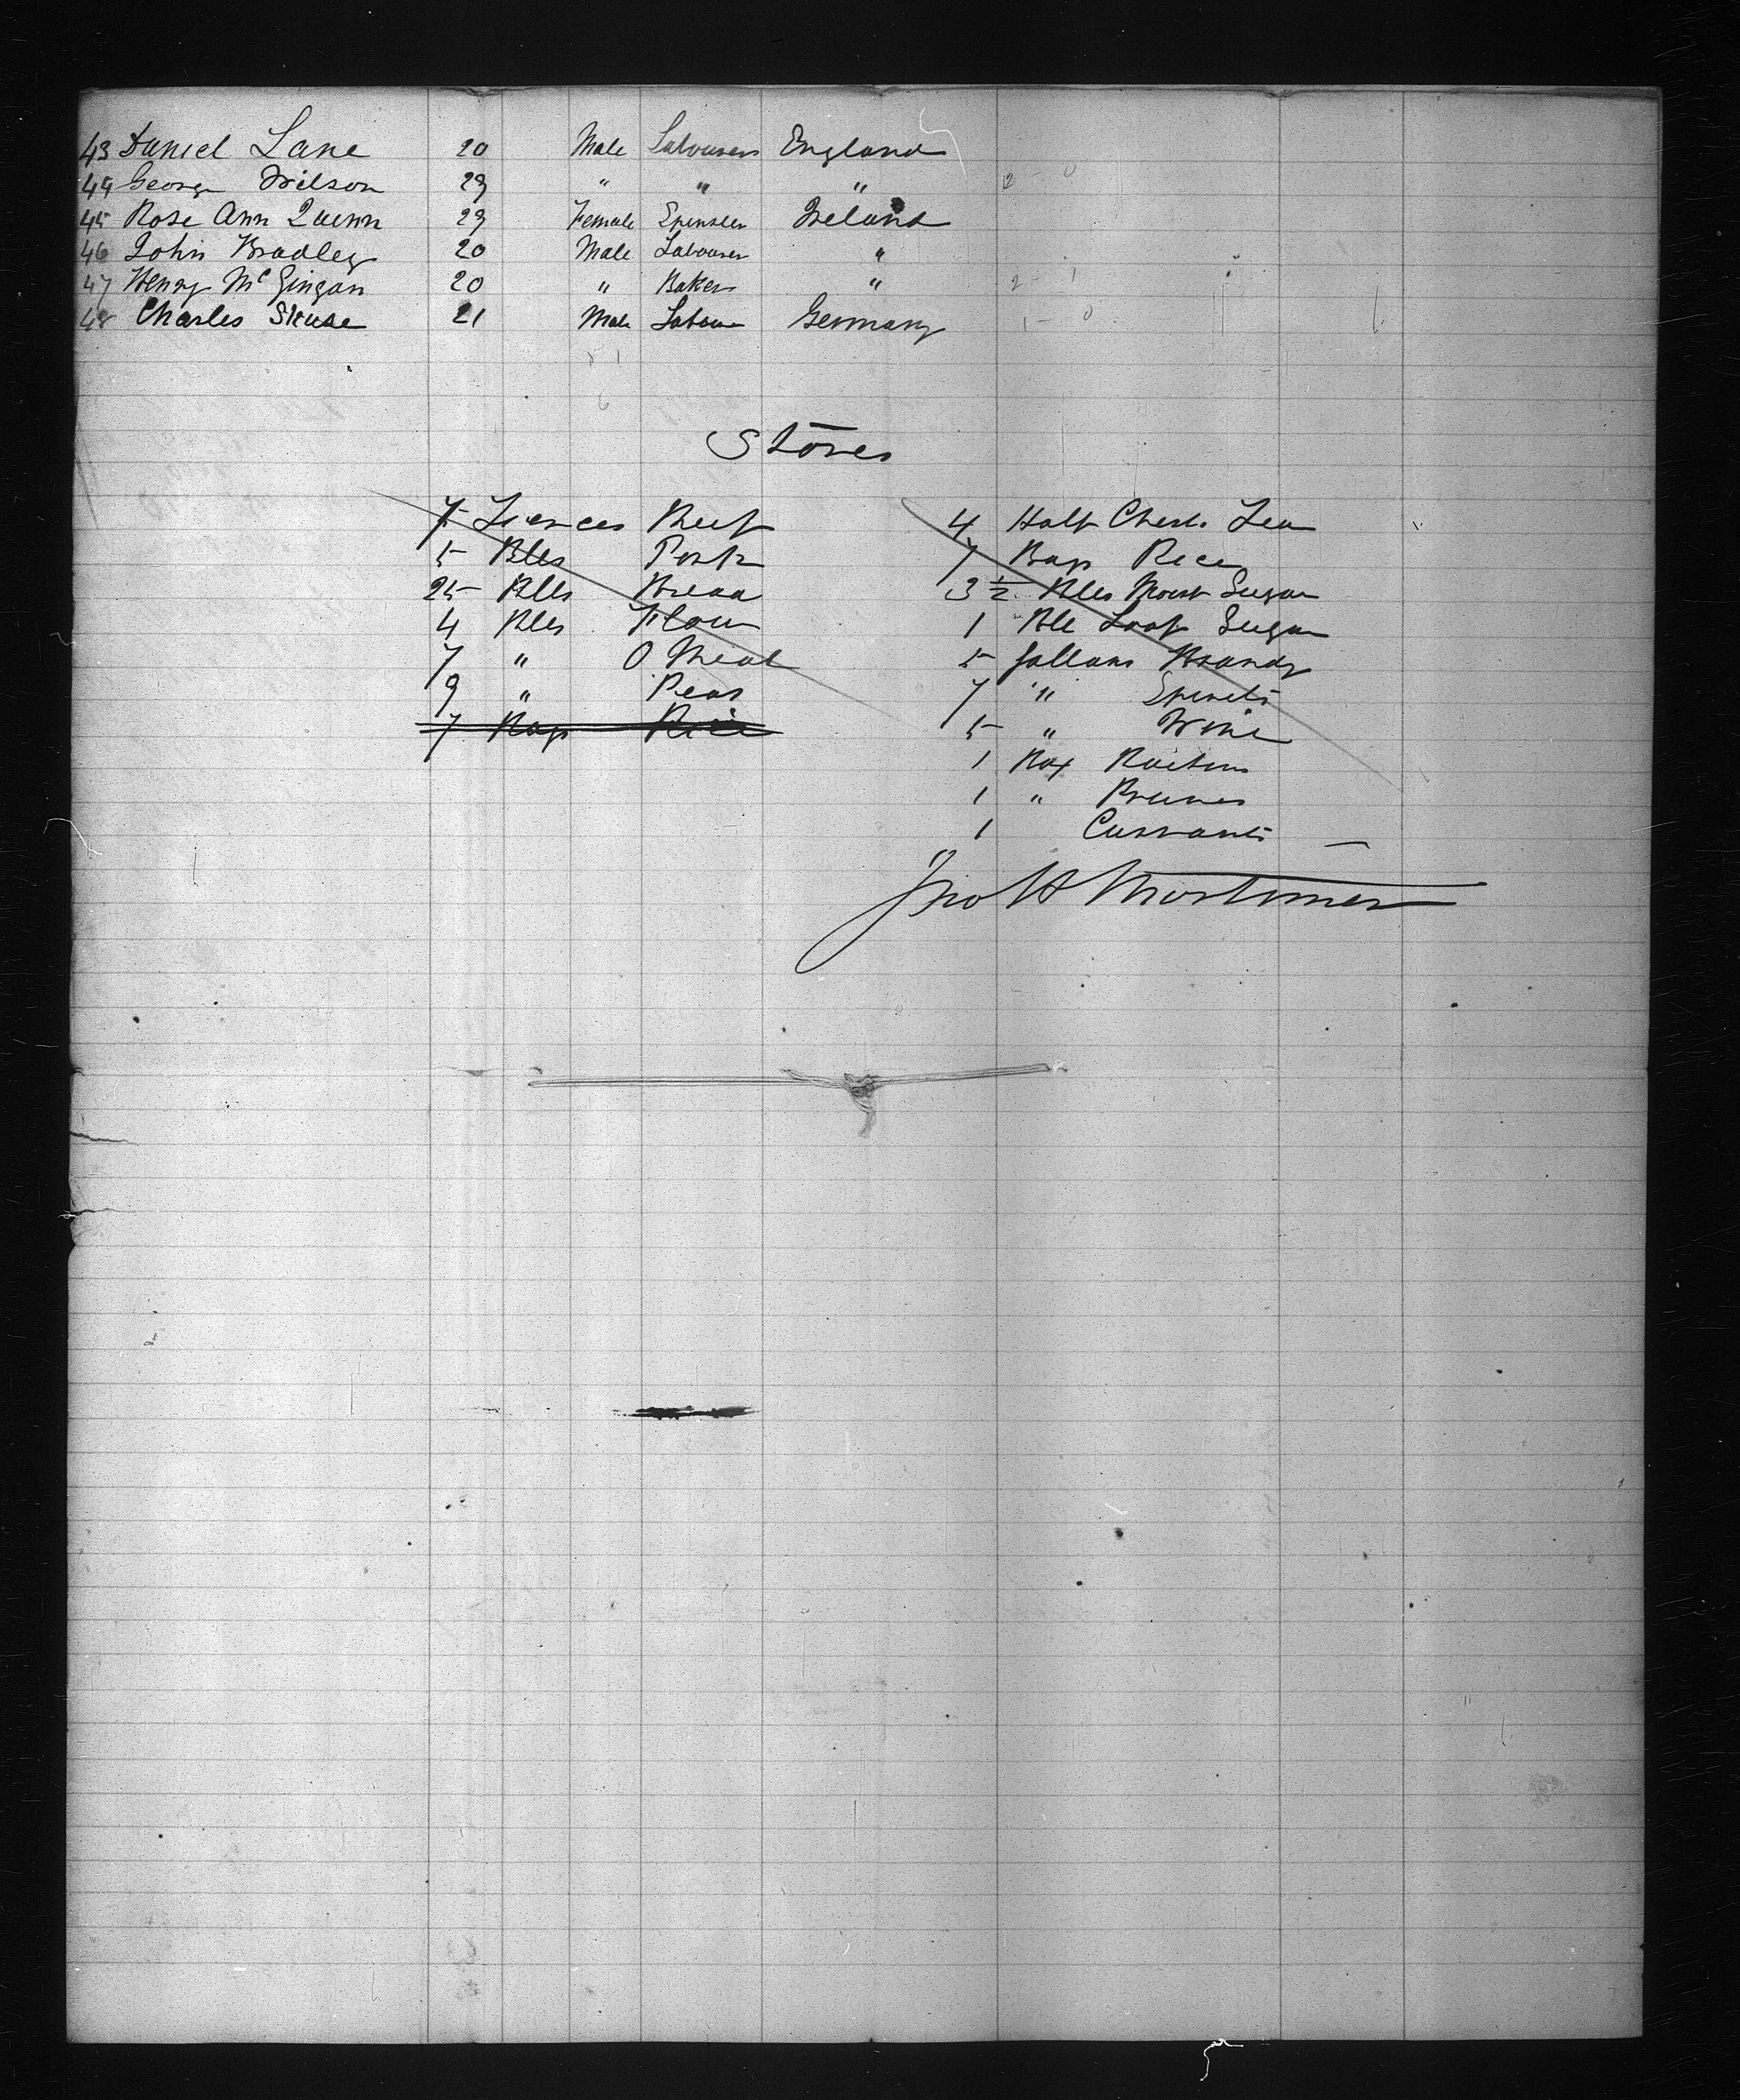 43 Daniel Lane 20 Male Labourer England
44 George Wilson 29 " " "
45 Rose Ann Quinn 29 Female Spinster Ireland
46 John Bradley 20 Male Labourer "
47 Henry McGingan 20 " Baker "
48 Charles Skuse 21 Male Labour Germany
Stores
7 Tierces Beef
5 Bls Pork
25 Blls Bread
4 Bls Flour
7 " O Meal
9 " Peas
7 Bags Rice
4 Half Chest. Tea
7 Bags Rice
3 1/2 Bls Moist Sugar
1 Ble Loaf Sugar
5 Gallons Brandy
7 " Spirits
5 " Wine
1 Box Raisins
1 " Prunes
1 Currants
Jno W Mortimer